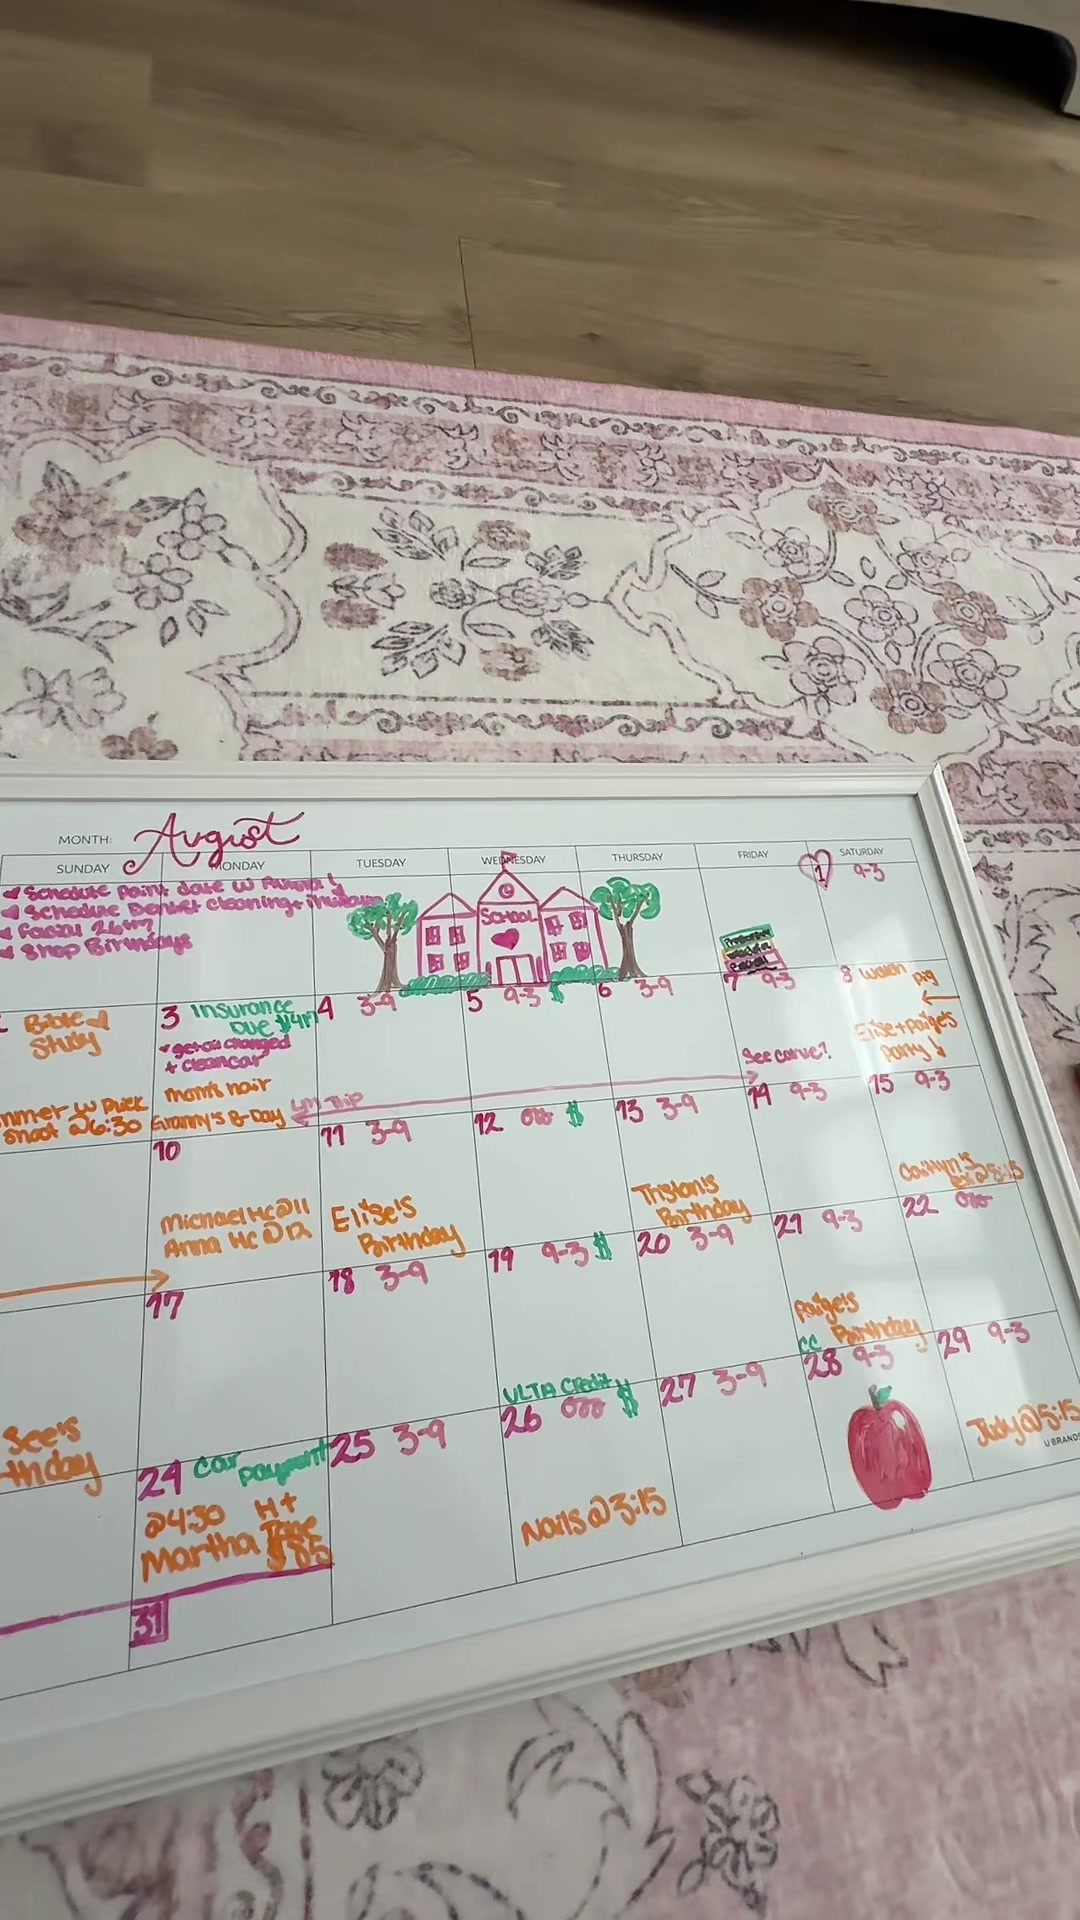 MONTH: August
SUNDAY MONDAY TUESDAY WEDNESDAY THURSDAY FRIDAY SATURDAY
Schedule paint date w Aurora!
Schedule Dentist cleaning +
Facial 26th
Shop Birthdays
SCHOOL
1 9-3
Bible
Study
@6:30
3 Insurance
Due
get oil changed
+ clean car
Mom's hair
Granny's B-Day
4 3-9
5 9-3 $
6 3-9
7 9-3
See carve?
8 Watch pig
Elise + Paige's
Party!
Trip
10
Michael Hc @11
Anna Hc @12
11 3-9
Elise's
Birthday
12 OFF $
13 3-9
Tristan's
Birthday
14 9-3
15 9-3
Caitlyn's
See's
17
18 3-9
19 9-3 $
ULTA Credit
20 3-9
21 9-3
Paige's
Birthday
CC
22 OFF
24 Car
payment
@4:30 H+
Martha
$85
25 3-9
26 OFF $
Nails @ 3:15
27 3-9
28 9-3
29 9-3
Judy @ 5:15
U BRANDS
31